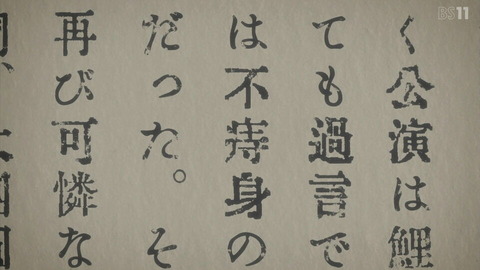 く公演は鯉
ても過言で
は不痔身の
だった。そ
再び可憐な
BS11